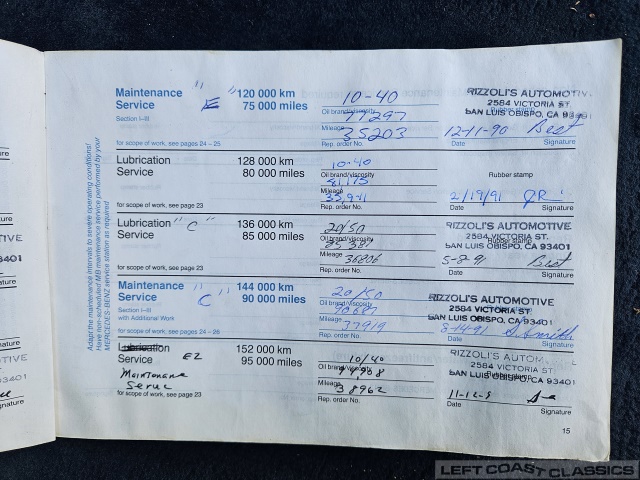 Adapt the maintenance intervals to severe operating conditions!
Have non-scheduled MB maintenance service performed by your
MERCEDES-BENZ service station as required
Maintenance "E" 120 000 km
Service 75 000 miles
Section I–III
for scope of work, see pages 24 – 25
10-40
Oil brand/viscosity
77297
Mileage
35203
Rep. order No.
RIZZOLI'S AUTOMOTIVE
2584 VICTORIA ST.
SAN LUIS OBISPO, CA 93401
12-11-90 Best
Date Signature
Lubrication 128 000 km
Service 80 000 miles
for scope of work, see page 23
10-40
Oil brand/viscosity
81115
Mileage
Rep. order No.
Rubber stamp
2/19/91
Date Signature
Lubrication "C" 136 000 km
Service 85 000 miles
for scope of work, see page 23
20/50
Oil brand/viscosity
Mileage
36806
Rep. order No.
RIZZOLI'S AUTOMOTIVE
2584 VICTORIA ST.
Rubber stamp
SAN LUIS OBISPO, CA 93401
5-8-91 Best
Date Signature
Maintenance "C" 144 000 km
Service 90 000 miles
Section I–III
with Additional Work
for scope of work, see pages 24 – 26
20/50
Oil brand/viscosity
90687
Mileage
37919
Rep. order No.
RIZZOLI'S AUTOMOTIVE
2584 VICTORIA ST.
SAN LUIS OBISPO, CA 93401
8-14-91 S. Smith
Date Signature
Lubrication 152 000 km
Service EZ 95 000 miles
Maintenance
for scope of work, see page 23
10/40
Oil brand/viscosity
94968
Mileage
38962
Rep. order No.
RIZZOLI'S AUTOM
2584 VICTORIA ST.
Rubber stamp
SAN LUIS OBISPO, CA 93401
Date Signature
15
LEFT COAST CLASSICS